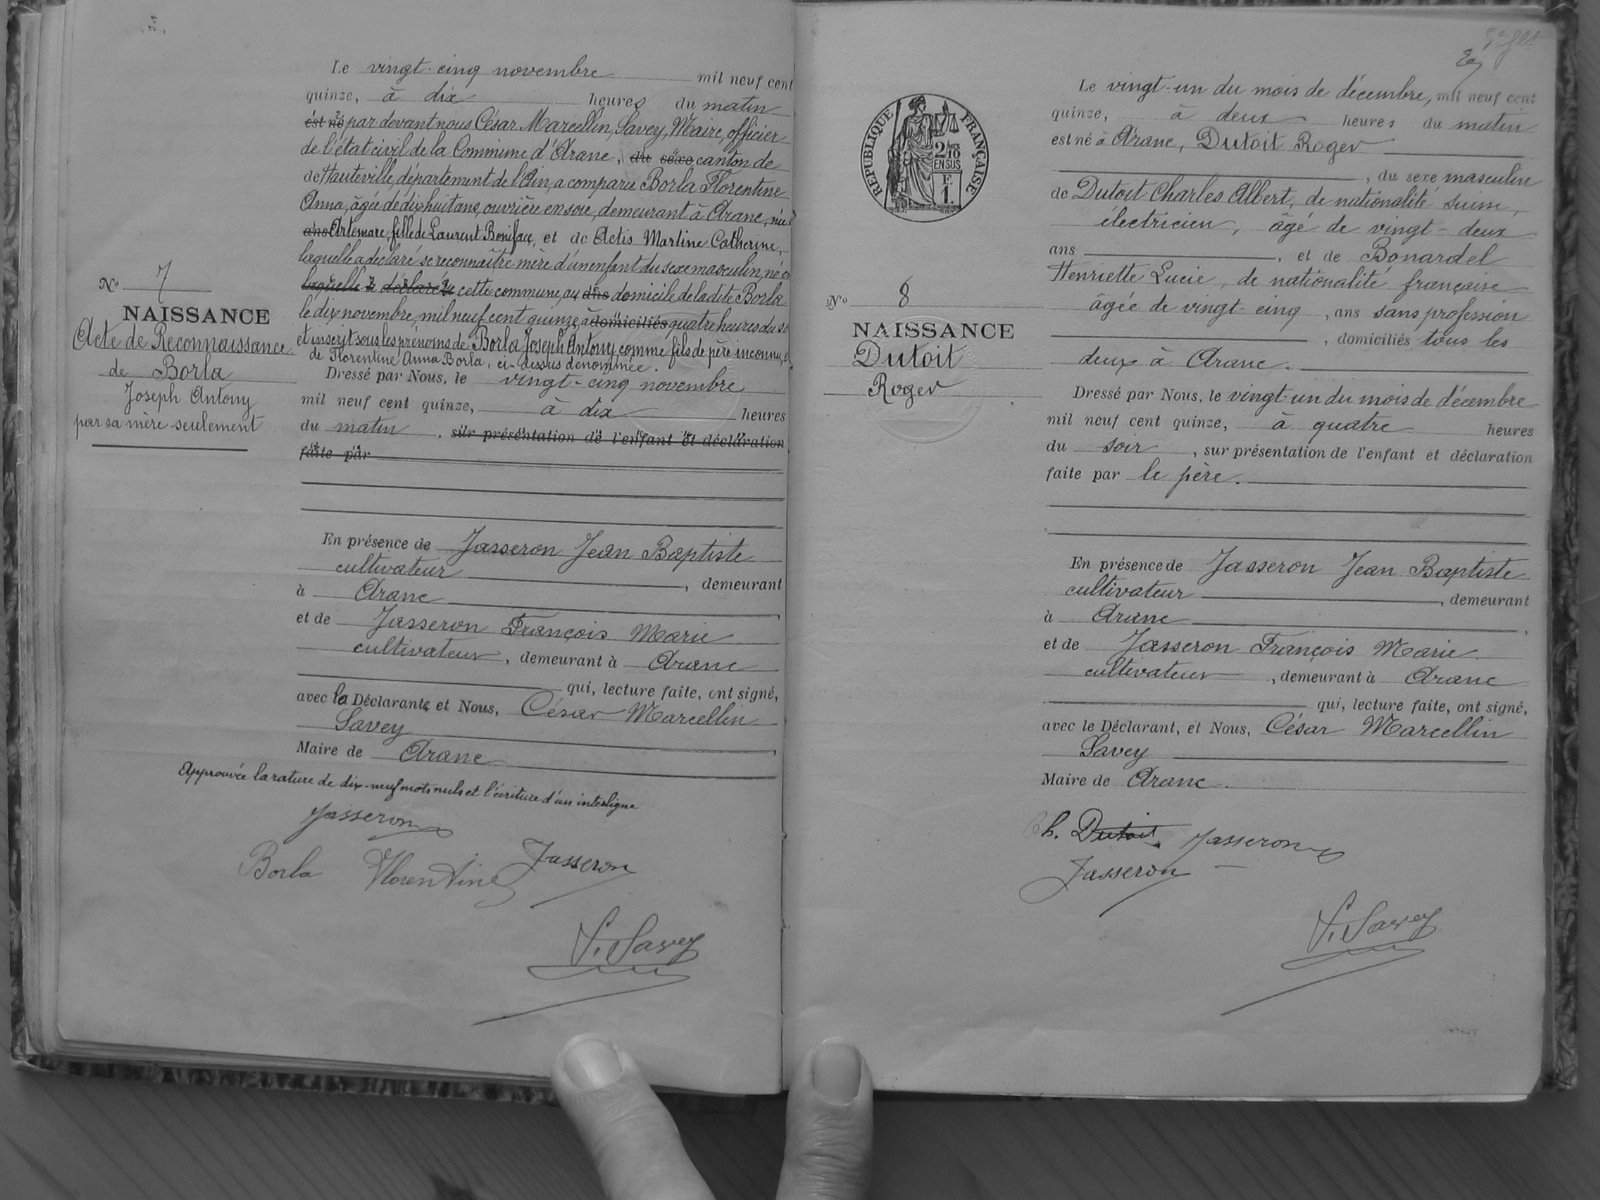 Le vingt-cinq novembre mil neuf cent
quinze, à dix heures du matin
est né par devant nous César Marcellin, Savey, Maire, officier
de l'état civil de la Commune d'Aranc, du sexe canton de
de Hauteville, département de l'Ain, a comparu Borla Florentine
Anna, âgée de dix huit ans, ouvrière en soie, demeurant à Aranc, née à
ans Artemare, fille de Laurent Boniface, et de Actis Martine Catherine,
laquelle a déclaré se reconnaître mère d'un enfant du sexe masculin, né en
laquelle a déclaré cette commune, au dans domicile de la dite Borla
le dix novembre, mil neuf cent quinze, à domiciliés quatre heures du soir
et inscrit sous les prénoms de Borla Joseph Antony comme fils de père inconnu, et
de Florentine Anna Borla, ci-dessus dénommée.
Dressé par Nous, le vingt-cinq novembre
mil neuf cent quinze, à dix heures
du matin, sur présentation de l'enfant et déclaration
faite par
En présence de Jasseron Jean Baptiste
cultivateur, demeurant
à Aranc
et de Jasseron François Marie
cultivateur, demeurant à Aranc
qui, lecture faite, ont signé,
avec la Déclarante et Nous, César Marcellin
Savey
Maire de Aranc
Approuvée la rature de dix-neuf mots nuls et l'écriture d'un interligne
Jasseron
Borla Florentine Jasseron
Savey
No 7
NAISSANCE
Acte de Reconnaissance
de Borla
Joseph Antony
par sa mère seulement
RÉPUBLIQUE FRANÇAISE
2/10
EN SUS
F.
1.
No 8
NAISSANCE
Dutoit
Roger
Le vingt-un du mois de décembre, mil neuf cent
quinze, à deux heures du matin
est né à Aranc, Dutoit Roger
, du sexe masculin
de Dutoit Charles Albert, de nationalité suisse,
électricien, âgé de vingt-deux
ans, et de Bonardel
Henriette Lucie, de nationalité française
âgée de vingt-cinq, ans sans profession
, domiciliés tous les
deux à Aranc.
Dressé par Nous, le vingt-un du mois de décembre
mil neuf cent quinze, à quatre heures
du soir, sur présentation de l'enfant et déclaration
faite par le père.
En présence de Jasseron Jean Baptiste
cultivateur, demeurant
à Aranc
et de Jasseron François Marie
cultivateur, demeurant à Aranc
qui, lecture faite, ont signé,
avec le Déclarant, et Nous, César Marcellin
Savey
Maire de Aranc.
Ch. Dutoit Jasseron
Jasseron
Savey